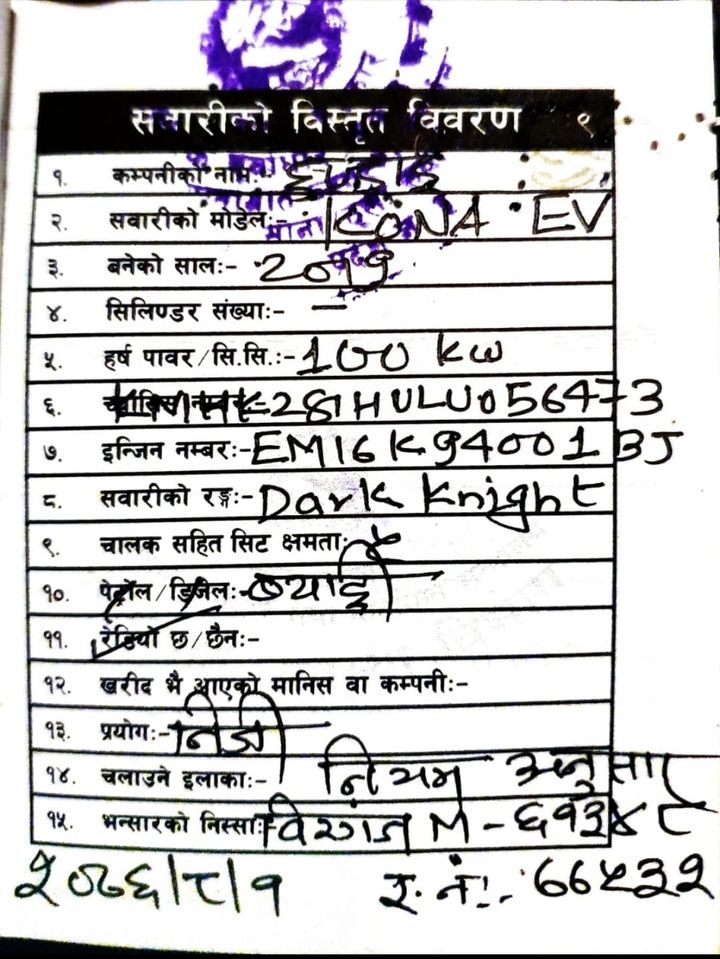 सवारीको विस्तृत विवरण ९
१. कम्पनीको नाम:- हुन्डाई
२. सवारीको मोडेल:- KONA EV
३. बनेको साल:- 2019
४. सिलिण्डर संख्या:- —
५. हर्ष पावर/सि.सि.:- 100 kw
६. KMHK281HULU056473
७. इन्जिन नम्बर:- EM16K94001BJ
८. सवारीको रङ्ग:- Dark Knight
९. चालक सहित सिट क्षमता:- ५
१०. पेट्रोल/डिजेल:- ब्याट्री
११. रेडियो छ/छैन:-
१२. खरीद भै आएको मानिस वा कम्पनी:-
१३. प्रयोग:- निजी
१४. चलाउने इलाका:- नियम अनुसार
१५. भन्सारको निस्सा:- विरगंज M-६१३४८
२०७६/८/१ र. नं:- ७७५३२